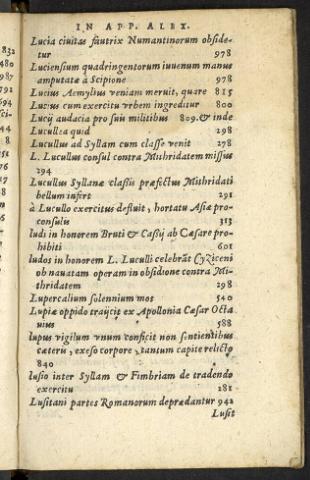 IN APP. ALEX.
Lucia ciuitas fautrix Numantinorum obside-
tur 978
Luciensium quadringentorum iuuenum manus
amputatæ à Scipione 978
Lucius Aemylius veniam meruit, quare 815
Lucius cum exercitu vrbem ingreditur 800
Lucij audacia pro suis militibus 809. & inde
Lucullea quid 298
Lucullus ad Syllam cum classe venit 278
L. Lucullus consul contra Mithridatem missus
294
Lucullus Syllanæ classis præfectus Mithridati
bellum infert 291
à Lucullo exercitus defluit, hortatu Asiæ pro-
consulis 313
ludi in honorem Bruti & Cassij ab Cæsare pro-
hibiti 601
ludos in honorem L. Luculli celebrāt Cyziceni
ob nauatam operam in obsidione contra Mi-
thridatem 298
Lupercalium solennium mos 540
Lupiæ oppido traijcit ex Apollonia Cæsar Octa
uius 588
lupus vigilum vnum conficit non sentientibus
cæteris, exeso corpore, tantum capite relicto
840
lusio inter Syllam & Fimbriam de tradendo
exercitu 281
Lusitani partes Romanorum deprædantur 942
Lusit
832
480
987
792
694
sci-
8
51
176